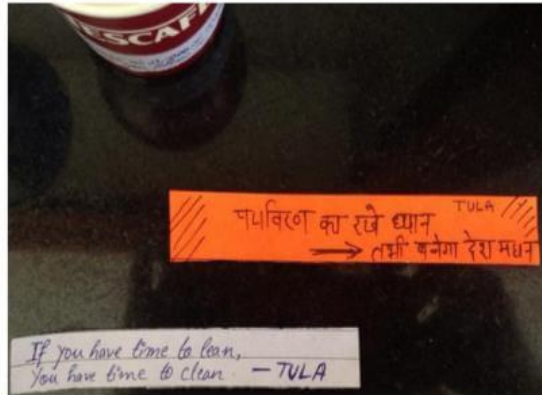 NESCAFÉ
पर्यावरण का रखे ध्यान TULA
→ तभी बनेगा देश महान
If you have time to lean,
You have time to clean. — TULA